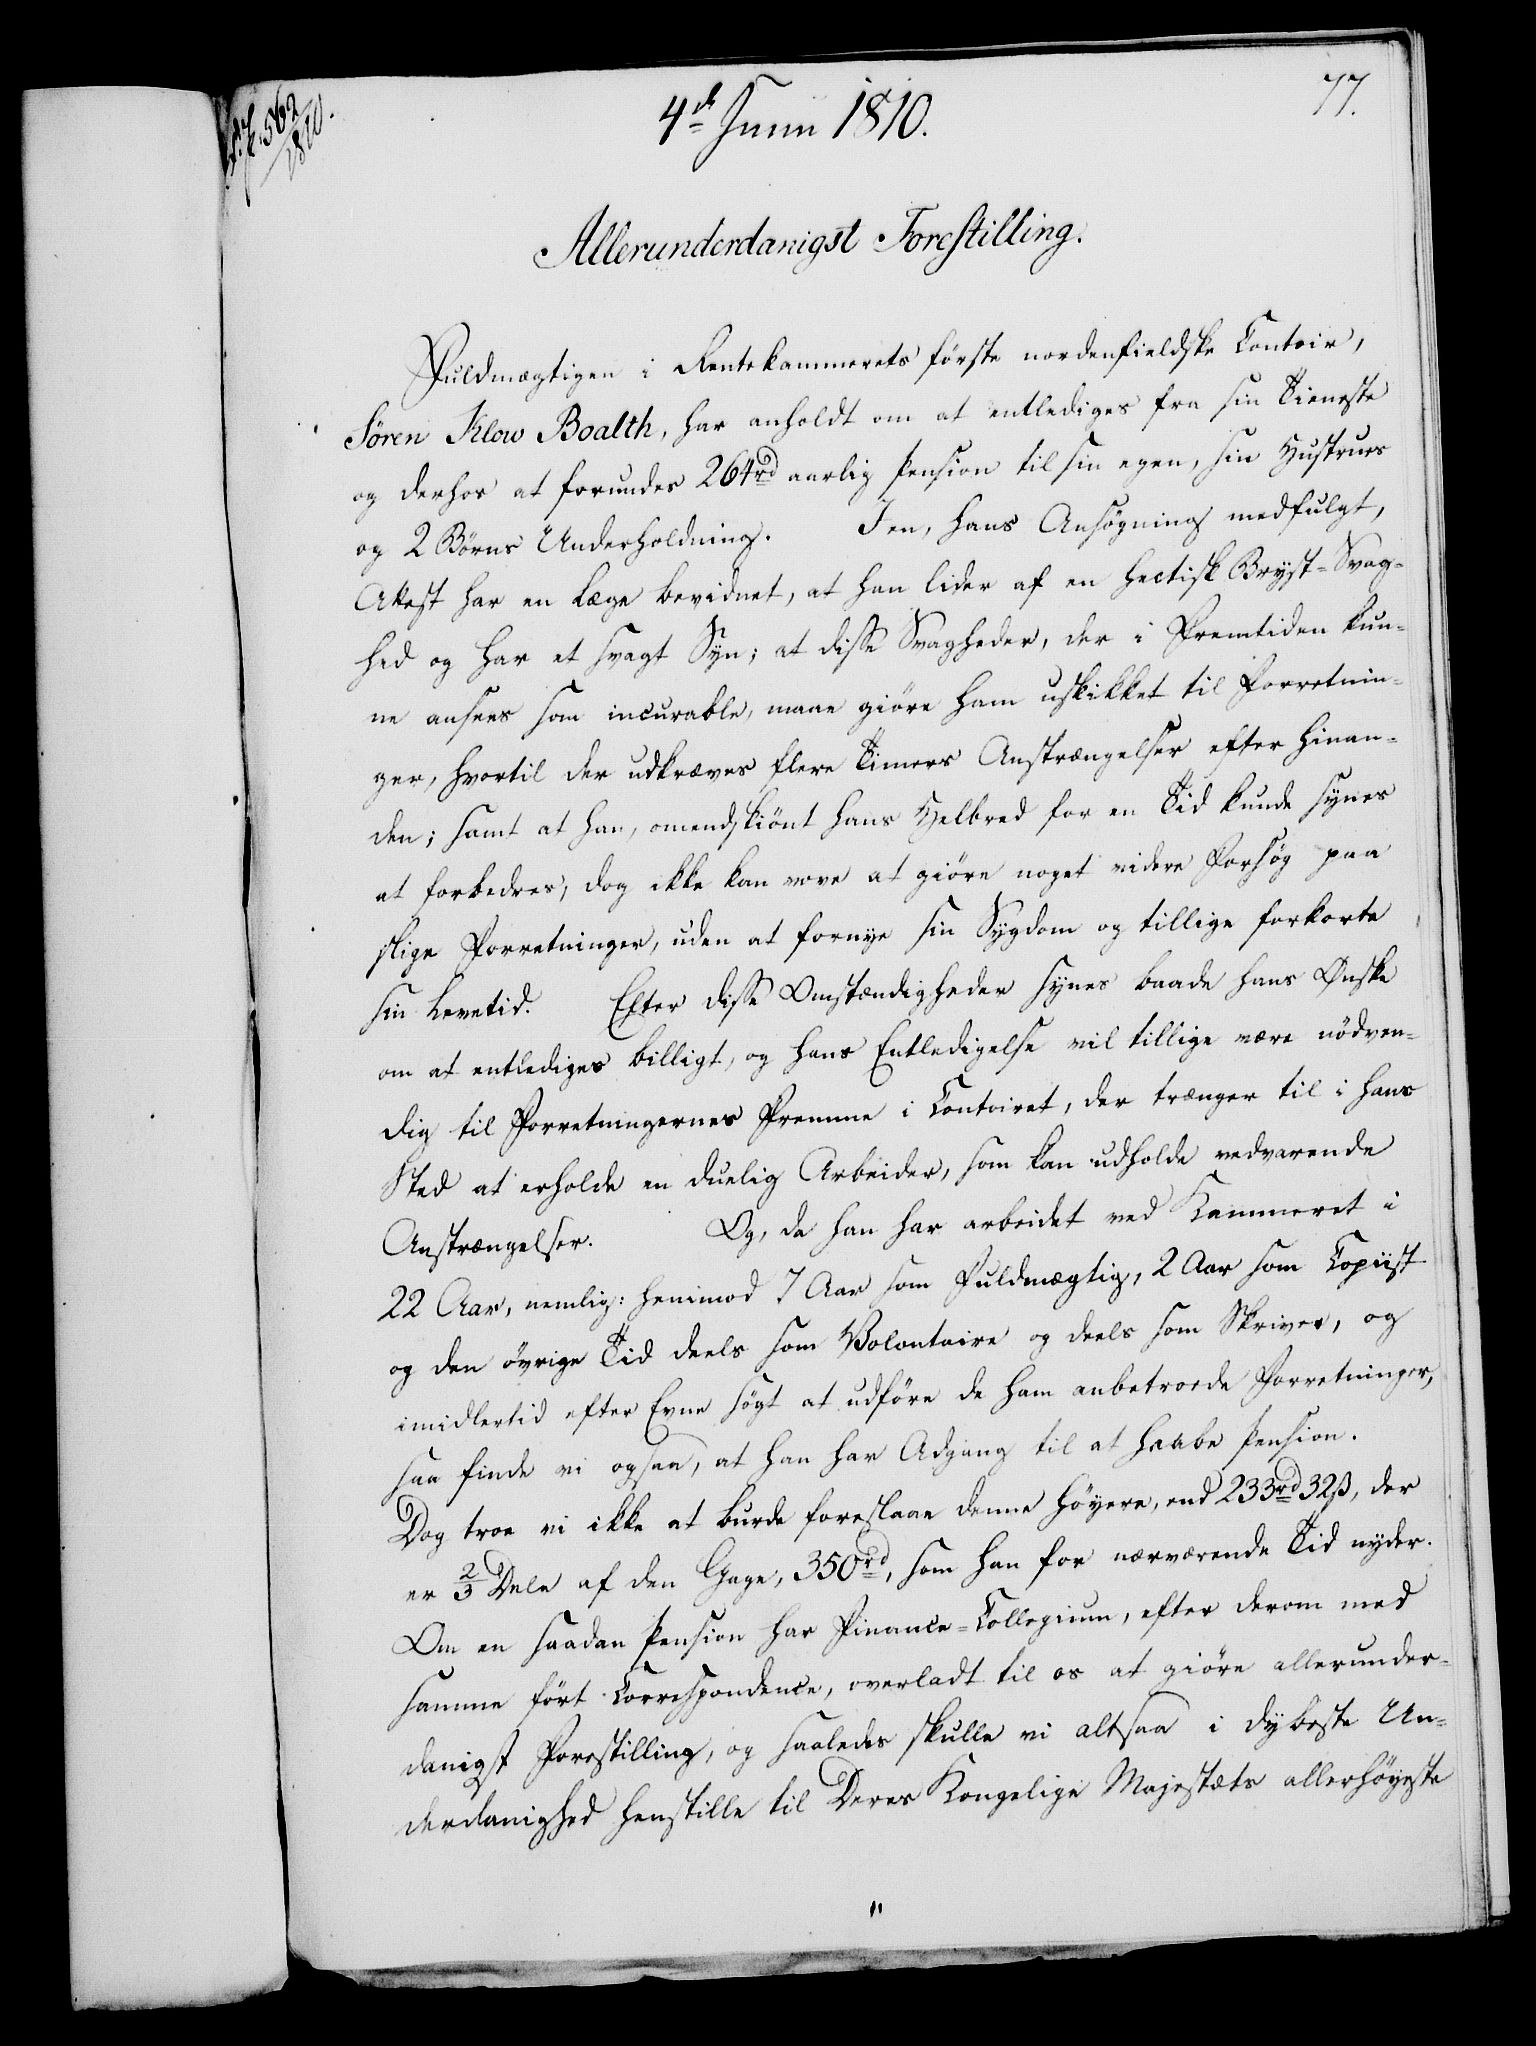 562
1810.
77.
4de Junii 1810.
Allerunderdanigst Forestilling.
Fuldmægtigen i Rentekammerets förste nordenfieldske Contoir,
Sören Klow Boalth, har anholdt om at entlediges fra sin Tieneste
og derhos at forundes 264rd aarlig Pension til sin egen, sin Hustrues
og 2 Börns Underholdning. I en, hans Ansögning medfulgt,
Attest har en Læge bevidnet, at han lider af en hectisk Bryst-Svag-
hed og har et svagt Syn; at disse Svagheder, der i Fremtiden kun-
ne ansees som incurable, maae giöre ham uskikket til Forretnin-
ger, hvortil der udkræves flere Timers Anstrængelser efter hinan-
den; samt at han, omendskiönt hans Helbred for en Tid kunde synes
at forbedres, dog ikke kan vove at giöre noget videre Forsög paa
slige Forretninger, uden at fornye sin Sygdom og tillige forkorte
sin Levetid. Efter disse Omstændigheder synes baade hans Ønske
om at entlediges billigt, og hans Entledigelse vil tillige være nödven-
dig til Forretningernes Fremme i Contoiret, der trænger til i hans
Sted at erholde en duelig Arbeider, som kan udholde vedvarende
Anstrængelser. Og, da han har arbeidet ved Kammeret i
22 Aar, nemlig: henimod 7 Aar som Fuldmægtig, 2 Aar som Copiist
og den övrige Tid deels som Volontaire og deels som Skriver, og
imidlertid efter Evne sögt at udföre de ham anbetroede Forretninger,
saa finde vi ogsaa, at han har Adgang til at haabe Pension.
Dog troe vi ikke at burde foreslaae denne höyere, end 233rd 32ß, der
er 2/3 Dele af den Gage, 350rd, som han for nærværende Tid nyder.
Om en saadan Pension har Finance-Collegium, efter derom med
samme fört Correspondence, overladt til os at giöre allerunder-
danigst Forestilling, og saaledes skulle vi altsaa i dybeste Un-
derdanighed henstille til Deres Kongelige Majestæts allerhöyeste